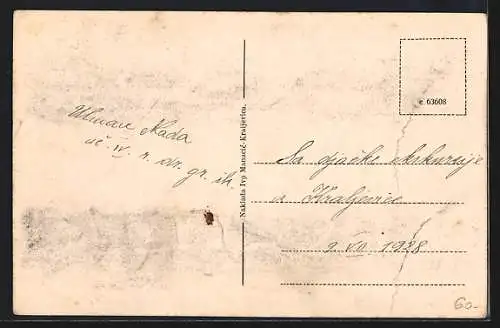 Ulman Nada
uč. IV. r. dr. gr. šk.
Naklada Ivy Manacić-Kraljevica.
e 63608
Sa djačke ekskurzije
u Kraljevice
2 VII 1928
60-